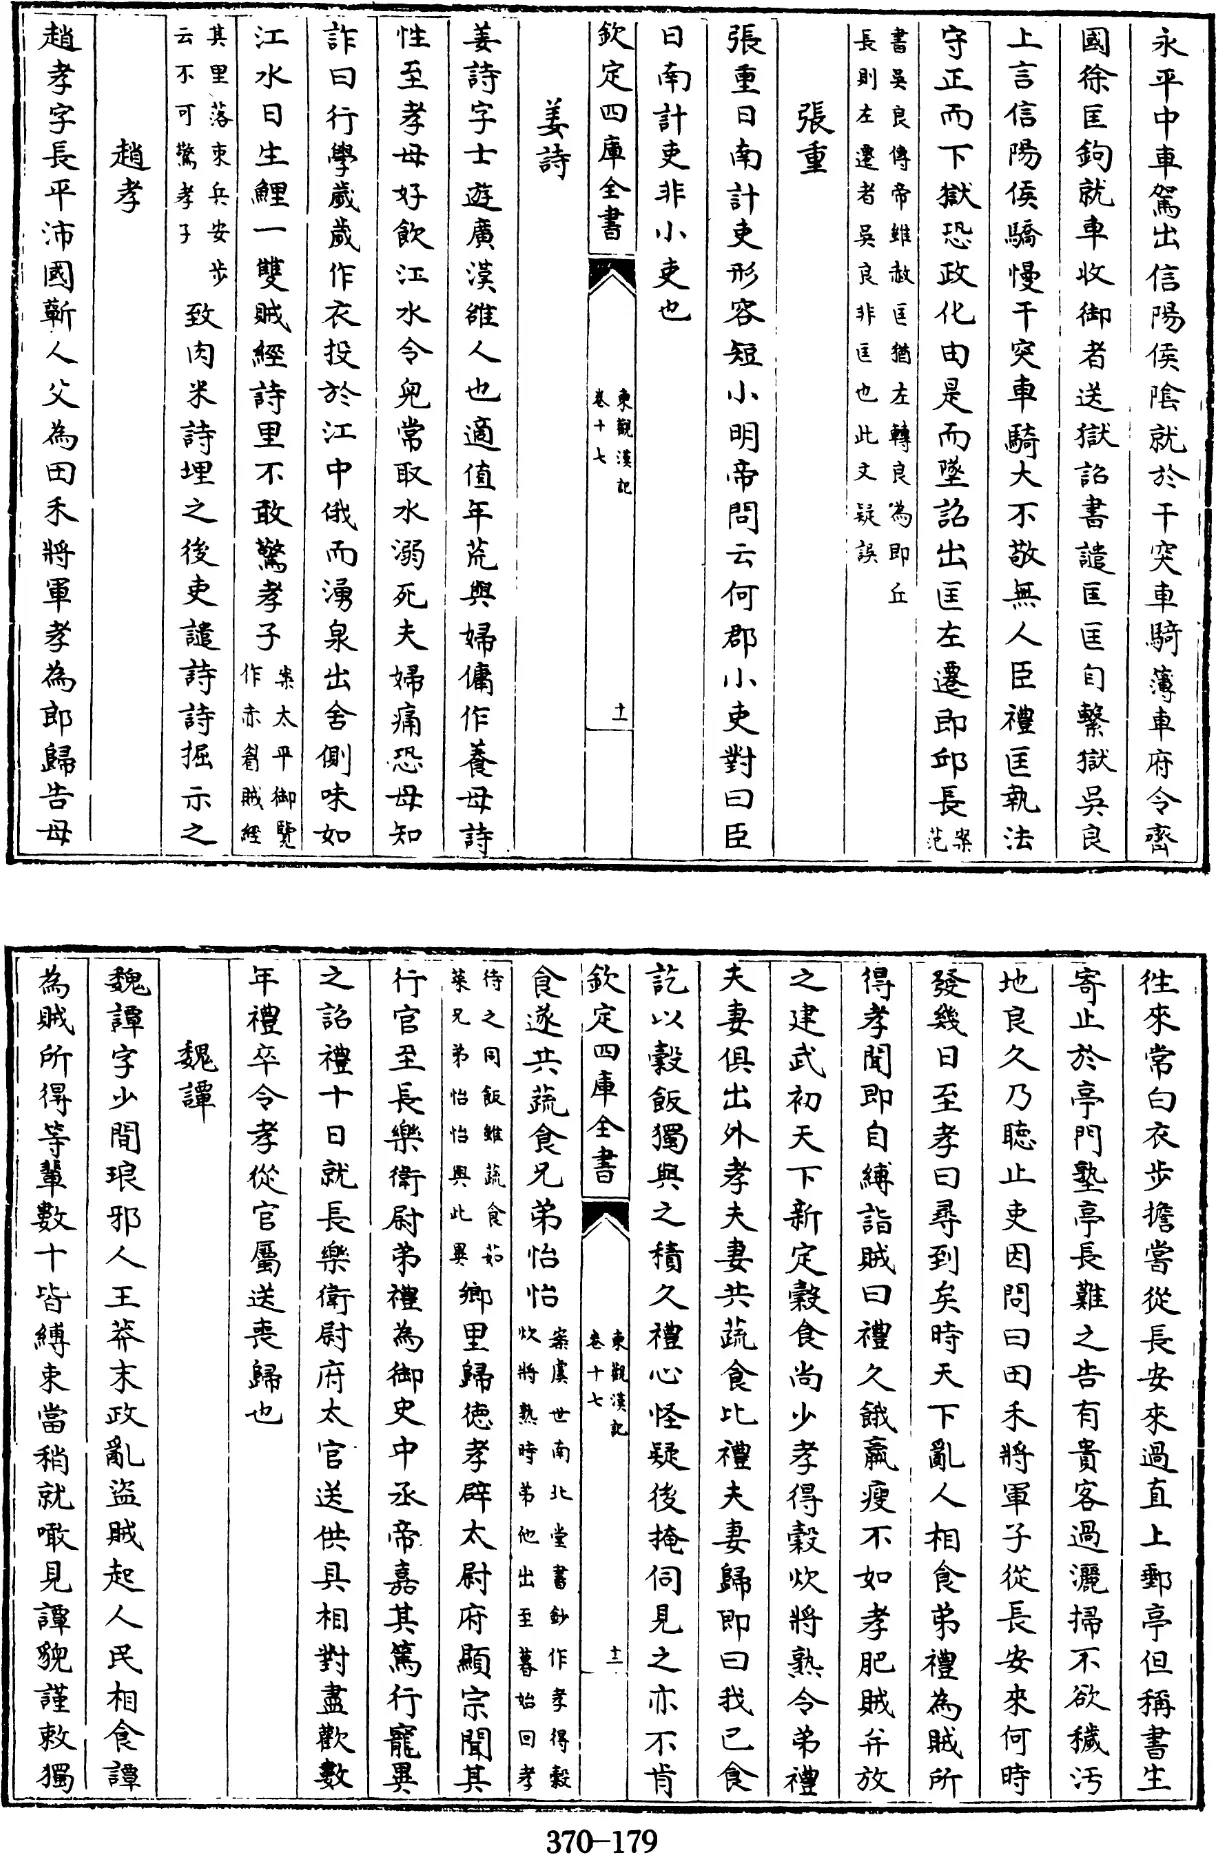 永平中車駕出信陽侯陰就於干突車騎簿車府令齊
國徐匡鉤就車收御者送獄詔書譴匡匡自繫獄吳良
上言信陽侯驕慢干突車騎大不敬無人臣禮匡執法
守正而下獄恐政化由是而墜詔出匡左遷即邱長案范
書吳良傳帝雖赦匡猶左轉良為即丘
長則左遷者吳良非匡也此文疑誤
張重
張重日南計吏形容短小明帝問云何郡小吏對曰臣
日南計吏非小吏也
欽定四庫全書
東觀漢記
卷十七
十一
姜詩
姜詩字士遊廣漢雒人也適值年荒與婦傭作養母詩
性至孝母好飲江水令兒常取水溺死夫婦痛恐母知
詐曰行學歲歲作衣投於江中俄而湧泉出舍側味如
江水日生鯉一雙賊經詩里不敢驚孝子案太平御覽
作赤眉賊經
其里落束兵安步
云不可驚孝子
致肉米詩埋之後吏譴詩詩掘示之
趙孝
趙孝字長平沛國蘄人父為田禾將軍孝為郎歸告母
往來常白衣步擔嘗從長安來過直上郵亭但稱書生
寄止於亭門塾亭長難之告有貴客過灑掃不欲穢汚
地良久乃聽止吏因問曰田禾將軍子從長安來何時
發幾日至孝曰尋到矣時天下亂人相食弟禮為賊所
得孝聞即自縛詣賊曰禮久餓羸瘦不如孝肥賊并放
之建武初天下新定穀食尚少孝得穀炊將熟令弟禮
夫妻俱出外孝夫妻共蔬食比禮夫妻歸即曰我已食
訖以穀飯獨與之積久禮心怪疑後掩伺見之亦不肯
欽定四庫全書
東觀漢記
卷十七
十二
食遂共蔬食兄弟怡怡案虞世南北堂書鈔作孝得穀
炊將熟時弟他出至暮始回孝
待之同飯雖蔬食茹
菜兄弟怡怡與此異
鄉里歸德孝辟太尉府顯宗聞其
行官至長樂衛尉弟禮為御史中丞帝嘉其篤行寵異
之詔禮十日就長樂衛尉府太官送供具相對盡歡數
年禮卒令孝從官屬送喪歸也
魏譚
魏譚字少間琅邪人王莽末政亂盜賊起人民相食譚
為賊所得等輩數十皆縛束當稍就噉見譚貌謹敕獨
370-179